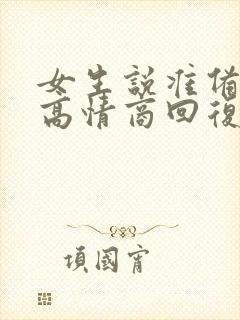 女生說准備
高情商回復
項國甯